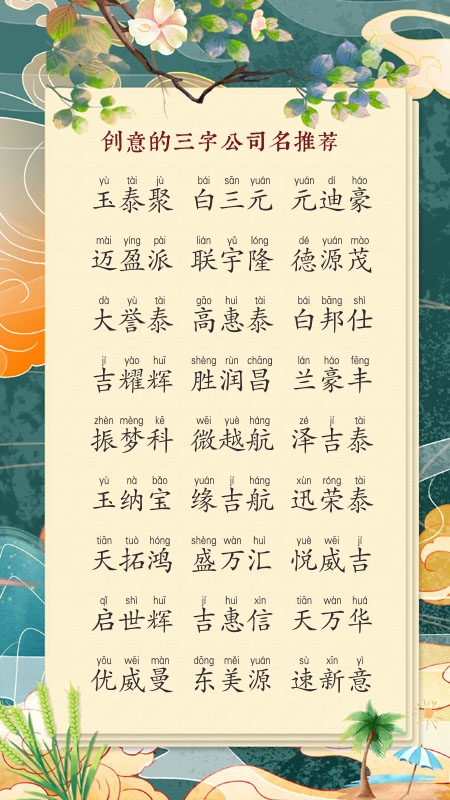 创意的三字公司名推荐
yù tài jù bái sān yuán yuán dí háo
玉泰聚 白三元 元迪豪
mài yíng pài lián yǔ lóng dé yuán mào
迈盈派 联宇隆 德源茂
dà yù tài gāo huì tài bái bāng shì
大誉泰 高惠泰 白邦仕
jí yào huī shèng rùn chāng lán háo fēng
吉耀辉 胜润昌 兰豪丰
zhèn mèng kē wēi yuè háng zé jí tài
振梦科 微越航 泽吉泰
yù nà bǎo yuán jí háng xùn róng tài
玉纳宝 缘吉航 迅荣泰
tiān tuò hóng shèng wàn huì yuè wēi jí
天拓鸿 盛万汇 悦威吉
qǐ shì huī jí huì xìn tiān wàn huá
启世辉 吉惠信 天万华
yōu wēi màn dōng měi yuán sù xīn yì
优威曼 东美源 速新意